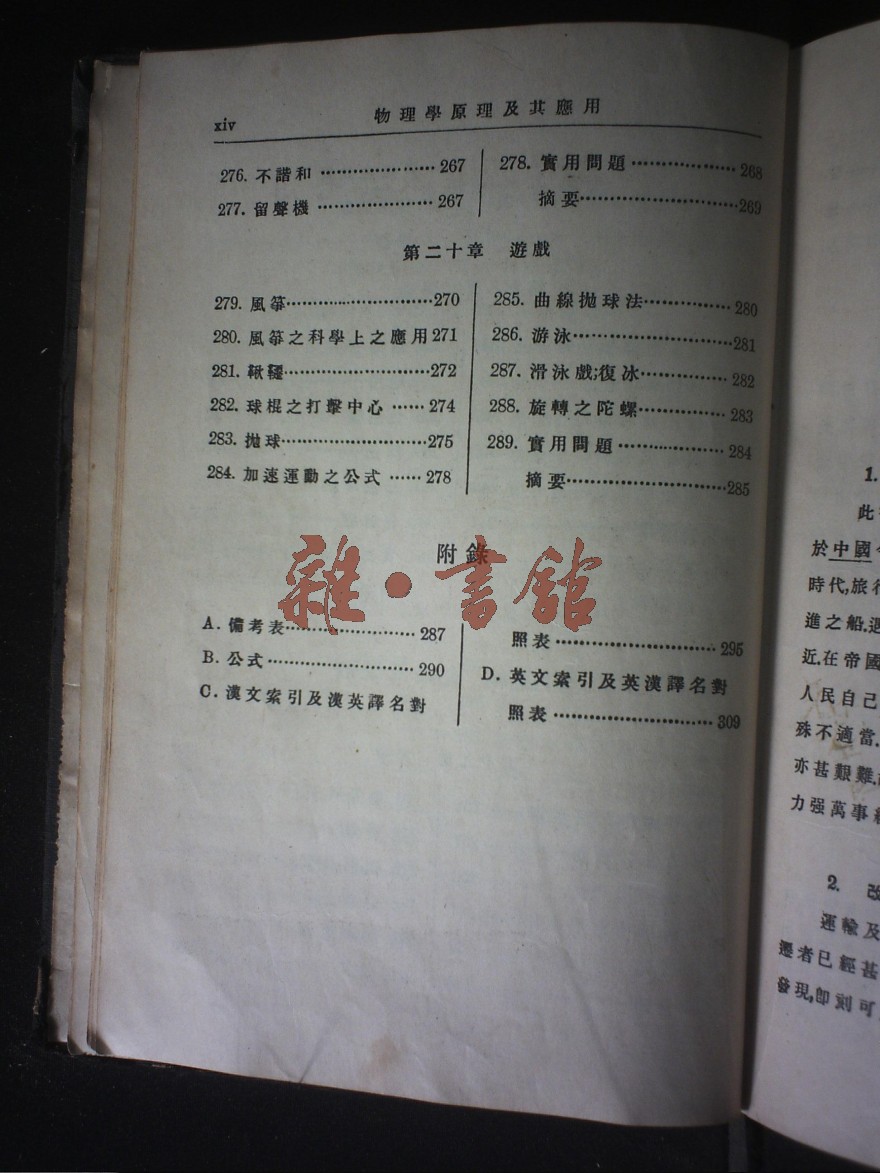 xiv 物理學原理及其應用
276. 不諧和 ⋯⋯ 267
277. 留聲機 ⋯⋯ 267
278. 實用問題 ⋯⋯ 268
摘要⋯⋯269
第二十章 遊戲
279. 風箏⋯⋯270
280. 風箏之科學上之應用271
281. 鞦韆⋯⋯272
282. 球棍之打擊中心 ⋯⋯ 274
283. 拋球⋯⋯275
284. 加速運動之公式 ⋯⋯ 278
285. 曲線拋球法⋯⋯280
286. 游泳⋯⋯281
287. 滑泳戲;復冰⋯⋯282
288. 旋轉之陀螺⋯⋯283
289. 實用問題⋯⋯284
摘要⋯⋯285
附錄
雜·書館
A. 備考表⋯⋯287
B. 公式⋯⋯290
C. 漢文索引及漢英譯名對
照表⋯⋯295
D. 英文索引及英漢譯名對
照表⋯⋯309
1.
此
於中國
時代,旅行
進之船.遇
近.在帝國
人民自己
殊不適當.
亦甚艱難.
力强萬事
2. 改
運輸及
遷者已經甚
發現,卽刻可